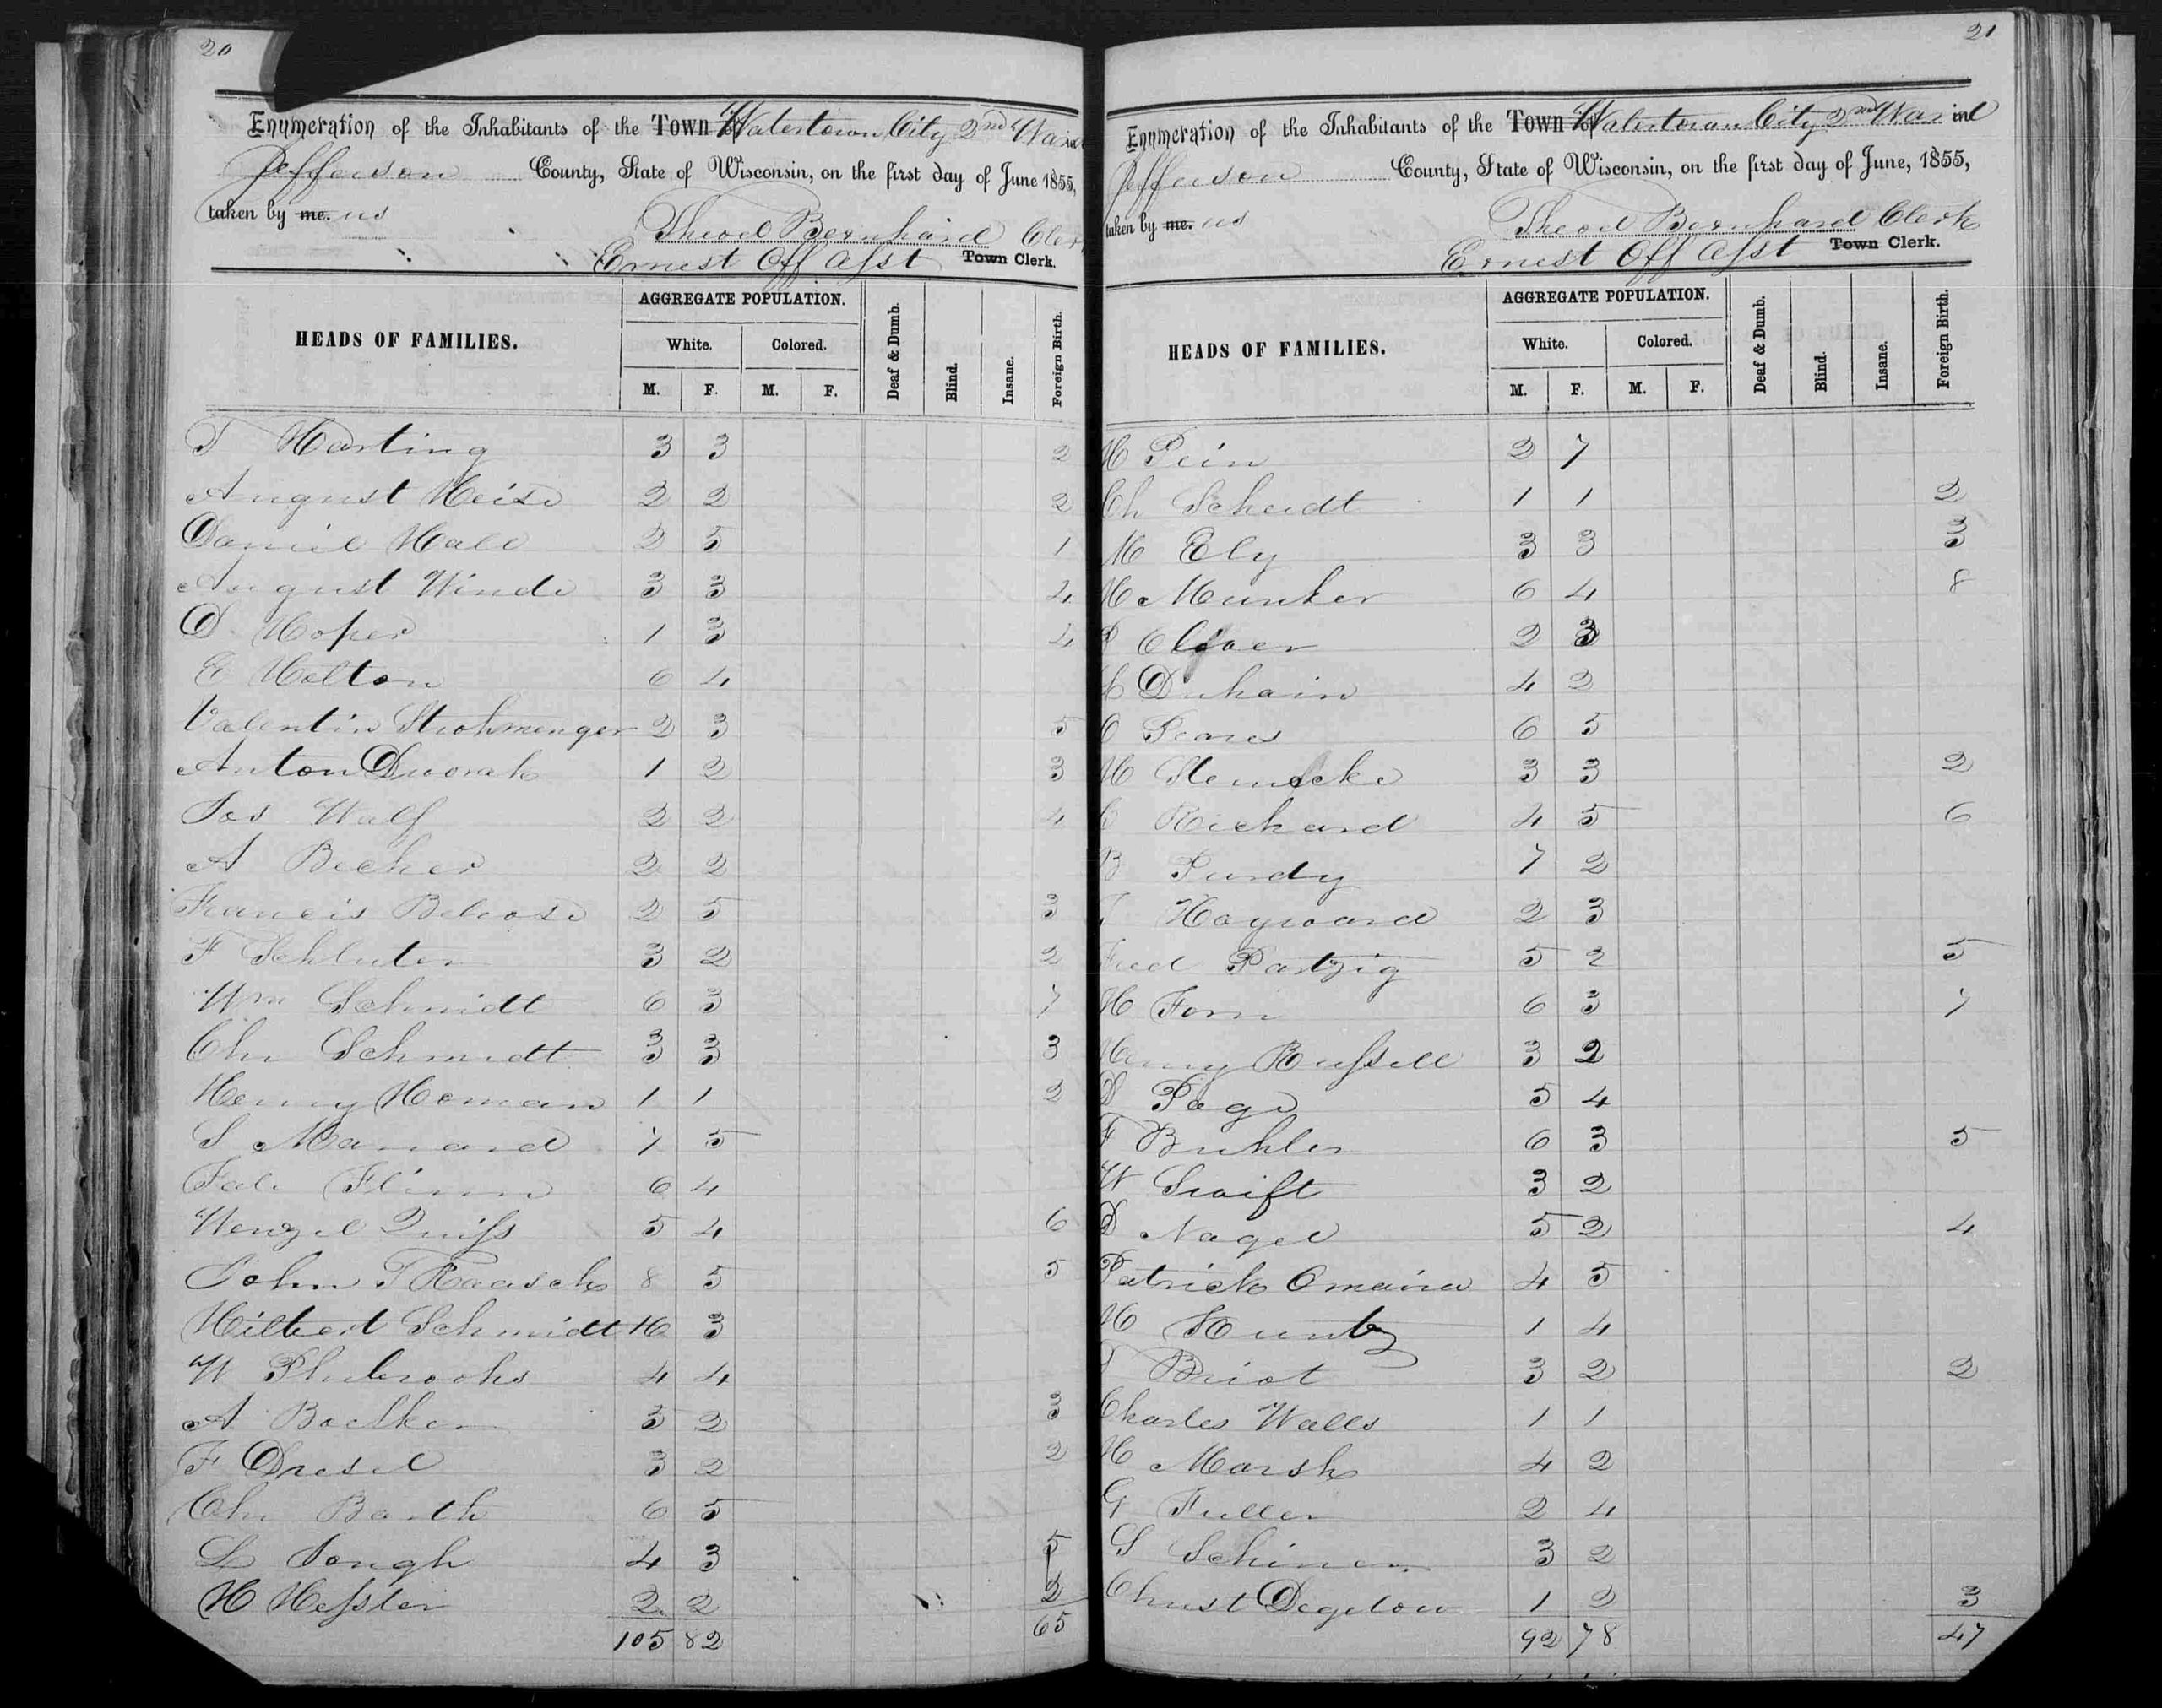 20
Enumeration of the Inhabitants of the Town of Watertown City 2nd Ward in
Jefferson County, State of Wisconsin, on the first day of June 1855,
taken by me. us Theod Bernhard Clerk
Ernest Off Asst Town Clerk.
HEADS OF FAMILIES. AGGREGATE POPULATION. Deaf & Dumb. Blind. Insane. Foreign Birth.
White. Colored.
M. F. M. F.
T Harting 3 3 2
August Heise 2 2 2
Daniel Hall 2 5 1
August Winde 3 3 4
D. Hoper 1 3 4
E Melton 6 4
Valentin Strohmenger 2 3 5
Anton Dworak 1 2 3
Jos Walf 2 2 4
A Becker 2 2
Francis Belrose 2 5 3
F Schluter 3 2 2
Wm Schmidt 6 3 7
Chr Schmidt 3 3 3
Henny Homan 1 1 2
S Manard 7 5
Flinn 6 4
Wenzel Quiss 5 4 6
John T Raasch 8 5 5
Hilbert Schmidt 16 3
W Philbrooks 4 4
A Boelken 3 2 3
F Dresel 3 2 2
Chr Barth 6 5
L Jongh 4 3 5
H Hessler 2 2 2
105 82 65
21
Enumeration of the Inhabitants of the Town of Watertown City 2nd Ward in
Jefferson County, State of Wisconsin, on the first day of June, 1855,
taken by me. us Theod Bernhard Clerk
Ernest Off Asst Town Clerk.
HEADS OF FAMILIES. AGGREGATE POPULATION. Deaf & Dumb. Blind. Insane. Foreign Birth.
White. Colored.
M. F. M. F.
H Pein 2 7
Ch Scheidt 1 1 2
M Ely 3 3 3
H Munker 6 4 8
P Oliver 2 3
Duhain 4 2
O Peares 6 5
H Stemecke 3 3 2
C Rickard 4 5 6
B Purdy 7 2
T Hayward 2 3
Fred Patzig 5 2 5
H Forn 6 3 7
Henry Russell 3 2
D Page 5 4
F Buhler 6 3 5
W Swift 3 2
D Nagel 5 2 4
Patrick Omaira 4 5
H 1 4
Briot 3 2 2
Charles Walls 1 1
H Marsh 4 2
G Fuller 2 4
S Schiner 3 2
Christ Degelow 1 2 3
92 78 47